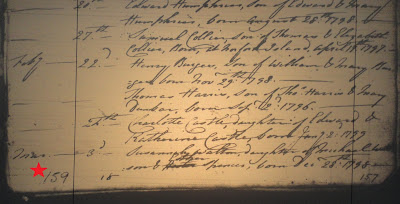 20th Edward Humphries, Son of Edward & Mary
Humphries, born August 28th 1798.
27th Samuel Collier, Son of Thomas & Elizabeth
Collier, Born at Norfolk Island, April 19th 1797.
Feby 22d Henry Burger, Son of William & Mary Bur
ger born Novr 29th 1798.
Thomas Harris, Son of Thos Harris & Mary
Dunbar, born Sep 1796.
Charlotte Castle, daughter of Edward &
Katherine Castle, born Jany 3d 1799
3d daughter of
son & Spencer, born Decr 28th 1798.
159 157